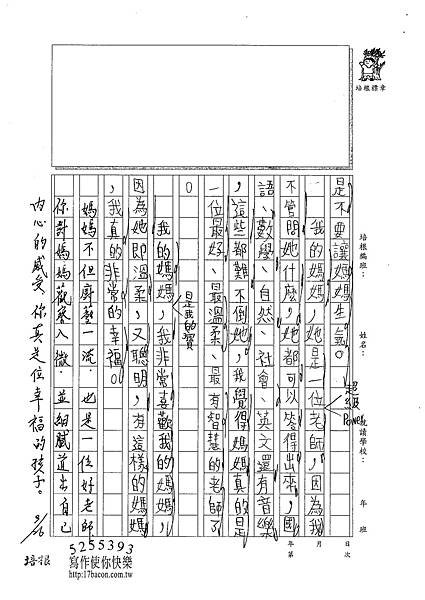 培根標章
培根編班：
姓名：
就讀學校：
年
班
年
月
日
第
次
是不要讓媽媽生氣。
我的媽媽，她是一位老師，因為我
超級
Power
不管問她什麼，她都可以答得出來，國
語、數學、自然、社會、英文還有音樂
，這些都難不倒她，我覺得媽媽真的是
一位最好、最溫柔、最有智慧的老師了
。
是我的寶
我的媽媽，我非常喜歡我的媽媽，
因為她即溫柔，又聰明，有這樣的媽媽
，我真的非常的幸福。
媽媽不但廚藝一流，也是一位好老師，
你對媽媽觀察入微，並細膩道出自己
內心的感受，你真是位幸福的孩子。
9/16
培根
5255393
寫作使你快樂
http://17bacon.com.tw/